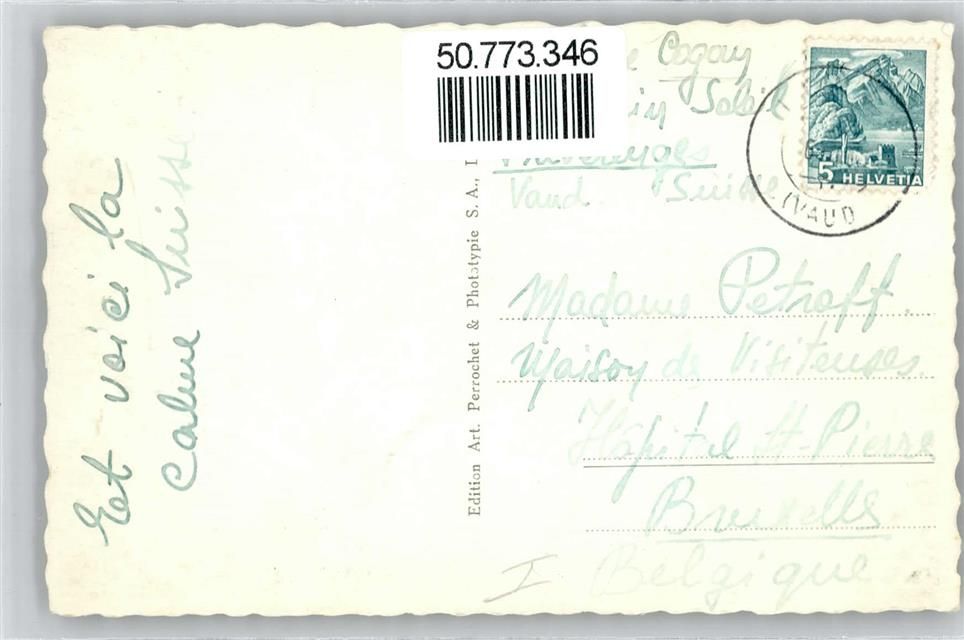 50.773.346
Cogay
Soleil
Préverenges
Vaud. Suisse
5 HELVETIA
(VAUD)
Et voici la
calme Suisse
Edition Art. Perrochet & Phototypie S. A.,
Madame Petroff.
Maison des Visiteuses.
Hôpital St-Pierre
Bruxelles
Belgique
I